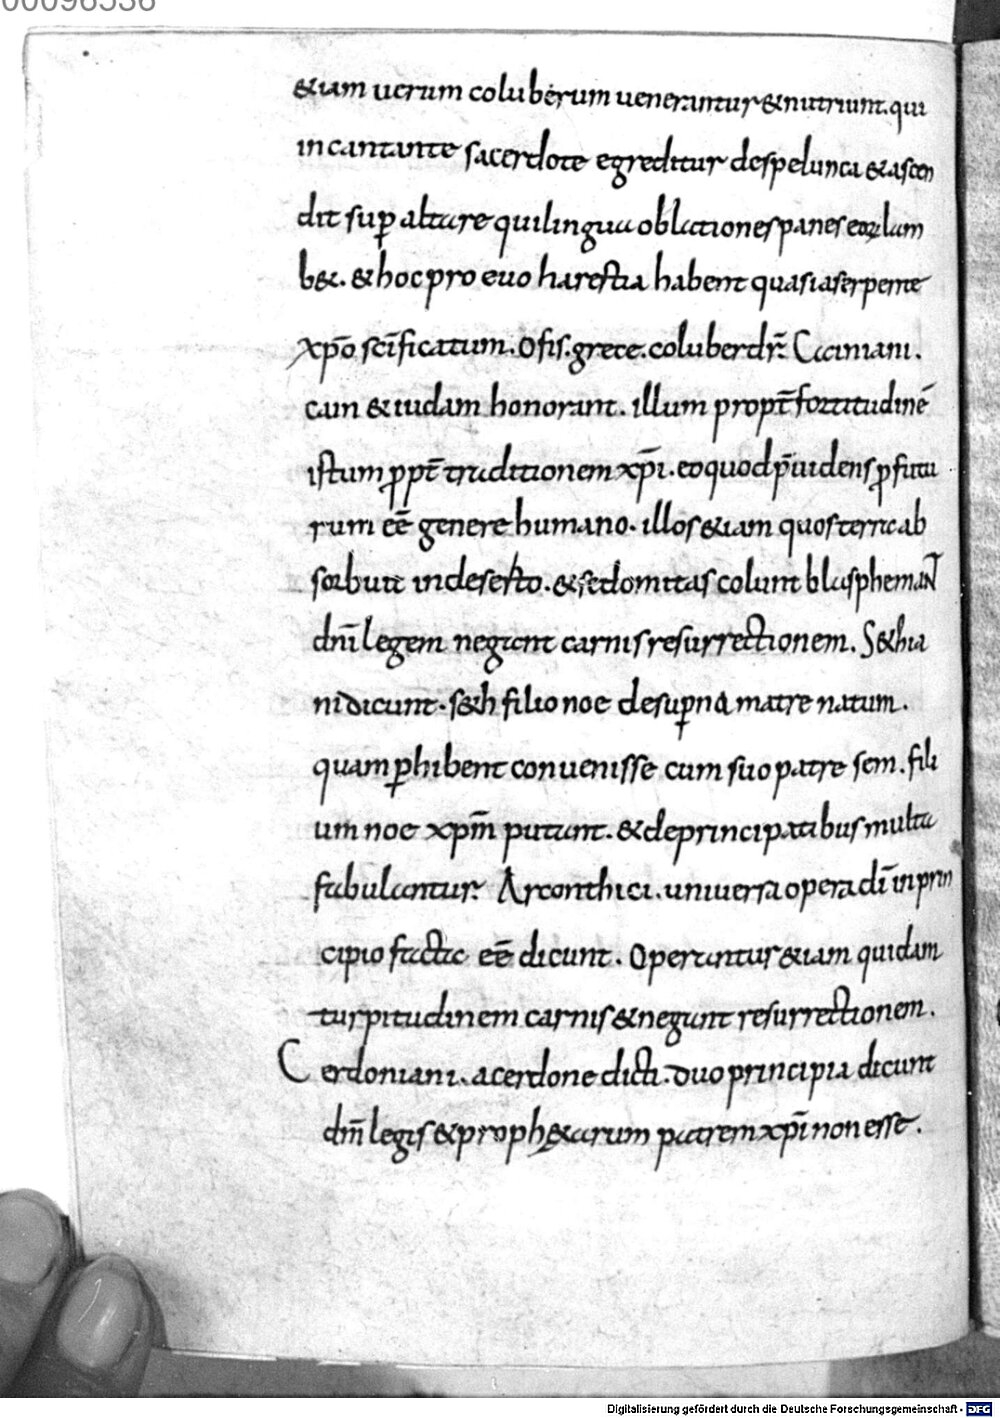 00096536
&iam uerum coluberum uenerantur & nutriunt. qui
incantante sacerdote egreditur despelunca & ascen
dit sup̄ altare qui lingua oblationes panes eoꝝ lam
b&. & hoc pro euo harestia habent quasi a serpente
xp̄o sc̄ificatum. Ofis. grece. coluber dr̄. Cainiani.
cain & iudam honorant. illum propt̄ fortitudinē
istum ꝓpt̄ traditionem xp̄i. eo quod p̄uidens ꝓfutu
rum eē genere humano. illos &iam quos terra ab
sorbuit indeserto. & sedomitas colunt blasphemant
dn̄i legem negant carnis resurrectionem. S&hia
ni dicunt. s&h filio noe desuꝑna matre natum.
quam ꝑhibent conuenisse cum suo patre sem. fili
um noe xp̄m putant. & de principatibus multa
fabulantur. Arconthici. uniuersa opera dī in prin
cipio facta eē dicunt. Operantur &iam quidam
turpitudinem carnis & negant resurrectionem.
Cerdoniani. a cerdone dicti. duo principia dicunt
dm̄ legis & proph&arum patrem xp̄i non esse.
Digitalisierung gefördert durch die Deutsche Forschungsgemeinschaft - DFG